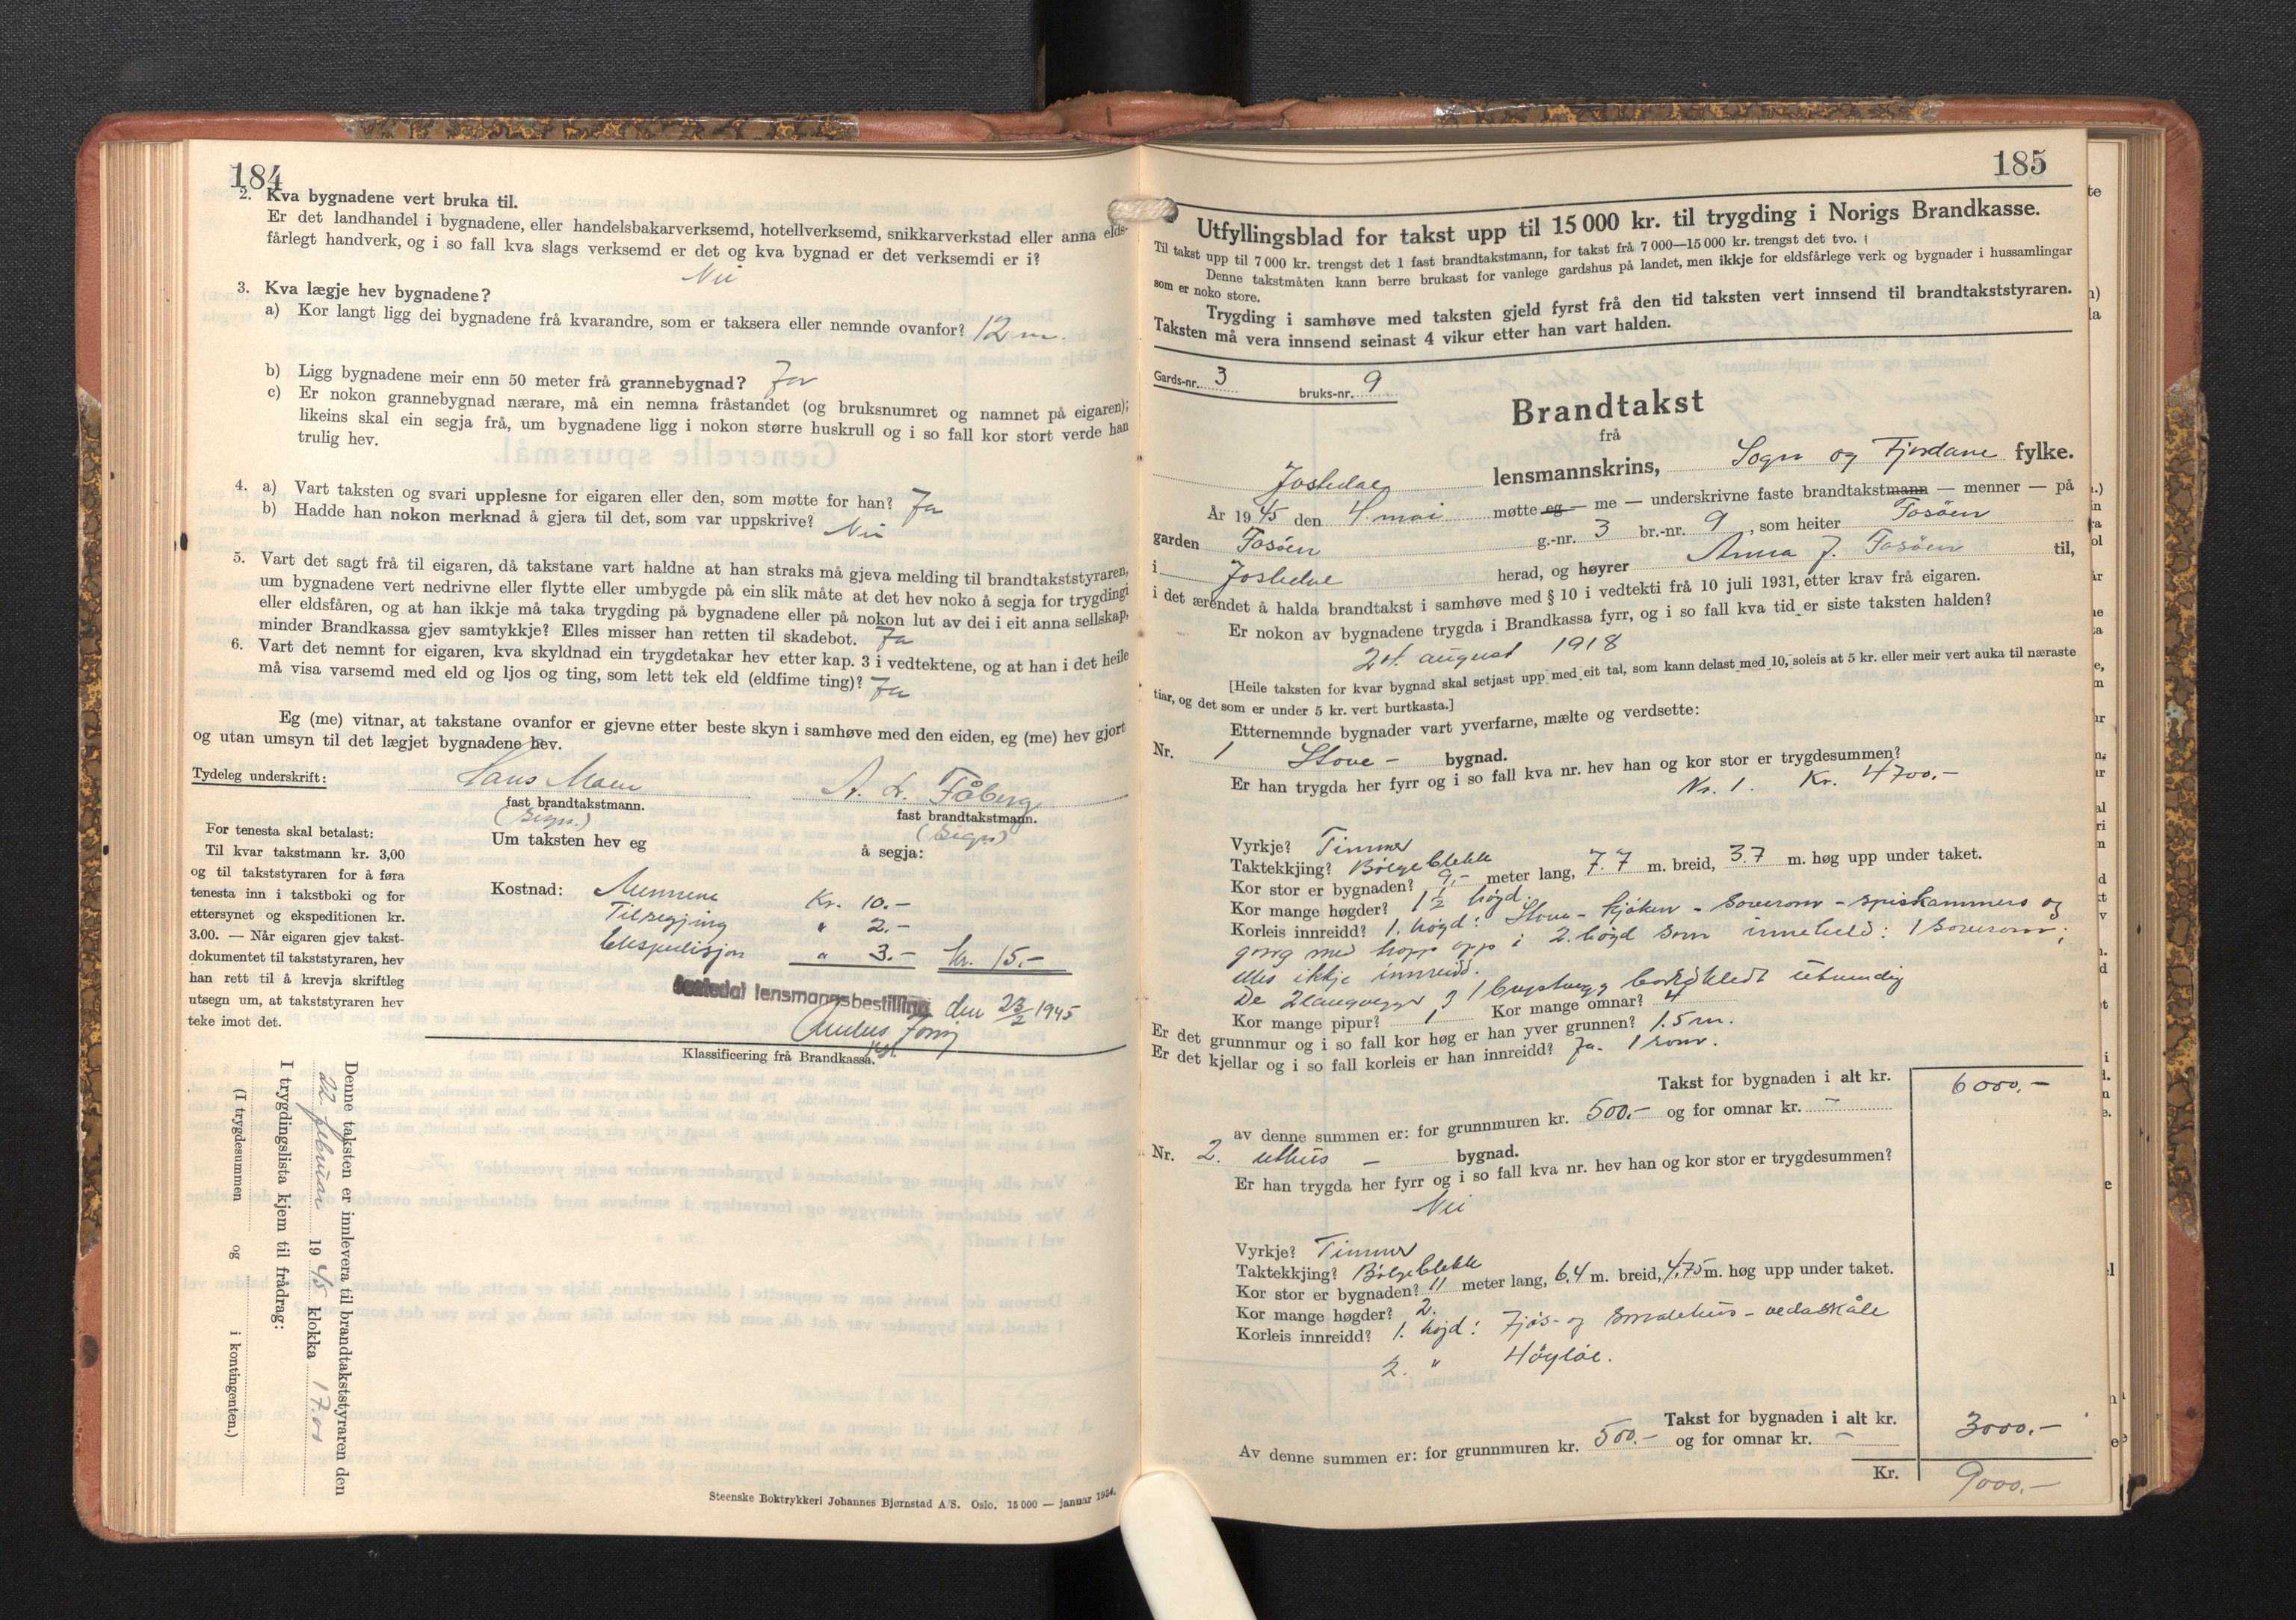 184
2. Kva bygnadene vert bruka til.
Er det landhandel i bygnadene, eller handelsbakarverksemd, hotellverksemd, snikkarverkstad eller anna elds-
fårlegt handverk, og i so fall kva slags verksemd er det og kva bygnad er det verksemdi er i?
Nei
3. Kva lægje hev bygnadene?
a) Kor langt ligg dei bygnadene frå kvarandre, som er taksera eller nemnde ovanfor? 12 m.
b) Ligg bygnadene meir enn 50 meter frå grannebygnad? Ja
c) Er nokon grannebygnad nærare, må ein nemna fråstandet (og bruksnumret og namnet på eigaren);
likeins skal ein segja frå, um bygnadene ligg i nokon større huskrull og i so fall kor stort verde han
trulig hev.
4. a) Vart taksten og svari upplesne for eigaren eller den, som møtte for han? Ja
b) Hadde han nokon merknad å gjera til det, som var uppskrive? Nei
5. Vart det sagt frå til eigaren, då takstane vart haldne at han straks må gjeva melding til brandtakststyraren,
um bygnadene vert nedrivne eller flytte eller umbygde på ein slik måte at det hev noko å segja for trygdingi
eller eldsfåren, og at han ikkje må taka trygding på bygnadene eller på nokon lut av dei i eit anna sellskap,
minder Brandkassa gjev samtykkje? Elles misser han retten til skadebot. Ja
6. Vart det nemnt for eigaren, kva skyldnad ein trygdetakar hev etter kap. 3 i vedtektene, og at han i det heile
må visa varsemd med eld og ljos og ting, som lett tek eld (eldfime ting)? Ja
Eg (me) vitnar, at takstane ovanfor er gjevne etter beste skyn i samhøve med den eiden, eg (me) hev gjort
og utan umsyn til det lægjet bygnadene hev.
Tydeleg underskrift: Hans Moen A. L. Fåberg
fast brandtakstmann. fast brandtakstmann.
(sign.) (sign)
For tenesta skal betalast:
Til kvar takstmann kr. 3,00
og til takststyraren for å føra
tenesta inn i takstboki og for
ettersynet og ekspeditionen kr.
3.00. — Når eigaren gjev takst-
dokumentet til takststyraren, hev
han rett til å krevja skriftleg
utsegn um, at takststyraren hev
teke imot det.
Um taksten hev eg å segja:
Kostnad: Mennene Kr. 10.-
Tilsegjing " 2.-
Ekspedisjon " 3.- kr. 15.-
Jostedal lensmannsbestilling den 23/2 1945
Klassificering frå Brandkassa.
Denne taksten er innlevera til brandtakststyraren den
22. februar 1945 klokka 17.00
I trygdingslista kjem til frådrag:
(I trygdesummen og i kontingenten.)
Steenske Boktrykkeri Johannes Bjørnstad A/S. Oslo. 15 000 — januar 1934.
185
Utfyllingsblad for takst upp til 15 000 kr. til trygding i Norigs Brandkasse.
Til takst upp til 7 000 kr. trengst det 1 fast brandtakstmann, for takst frå 7 000—15 000 kr. trengst det tvo.
Denne takstmåten kann berre brukast for vanlege gardshus på landet, men ikkje for eldsfårlege verk og bygnader i hussamlingar
som er noko store.
Trygding i samhøve med taksten gjeld fyrst frå den tid taksten vert innsend til brandtakststyraren.
Taksten må vera innsend seinast 4 vikur etter han vart halden.
Gards-nr. 3 bruks-nr. 9
Brandtakst
frå
Jostedal lensmannskrins, Sogn og Fjordane fylke.
År 1945 den 4. mai møtte eg — me — underskrivne faste brandtakstmann — menner — på
garden Fosøen g.-nr. 3 br.-nr. 9, som heiter Fosøen
i Jostedal herad, og høyrer Anna J. Fosøen til,
i det ærendet å halda brandtakst i samhøve med § 10 i vedtekti frå 10 juli 1931, etter krav frå eigaren.
Er nokon av bygnadene trygda i Brandkassa fyrr, og i so fall kva tid er siste taksten halden?
24. august 1918
[Heile taksten for kvar bygnad skal setjast upp med eit tal, som kann delast med 10, soleis at 5 kr. eller meir vert auka til næraste
tiar, og det som er under 5 kr. vert burtkasta.]
Etternemnde bygnader vart yverfarne, mælte og verdsette:
Nr. 1 Stove - bygnad.
Er han trygda her fyrr og i so fall kva nr. hev han og kor stor er trygdesummen?
Nr. 1. Kr. 4700.-
Vyrkje? Timmer
Taktekkjing? Bølgeblekk
Kor stor er bygnaden? 9,- meter lang, 7.7 m. breid, 3.7 m. høg upp under taket.
Kor mange høgder? 1 1/2 høgd.
Korleis innreidd? 1. høgd: Stove - kjøken - soverom - spiskammers og
gong med tropp opp i 2. høgd som inneheld: 1 soverom,
elles ikkje innreidd.
De 2 langvegger og 1 tverrvegg bordkledt utvendig
Kor mange pipur? 1 Kor mange omnar? 4
Er det grunnmur og i so fall kor høg er han yver grunnen? 1.5 m.
Er det kjellar og i so fall korleis er han innreidd? Ja. 1 rom.
Takst for bygnaden i alt kr. 6000,-
av denne summen er: for grunnmuren kr. 500.- og for omnar kr. -
Nr. 2. uthus - bygnad.
Er han trygda her fyrr og i so fall kva nr. hev han og kor stor er trygdesummen?
Nei
Vyrkje? Timmer
Taktekkjing? Bølgeblekk
Kor stor er bygnaden? 11 meter lang, 6.4 m. breid, 4.75 m. høg upp under taket.
Kor mange høgder? 2.
Korleis innreidd? 1. høgd: Fjøs- og smalehus - vedaskåle
2. " Høyløe.
Takst for bygnaden i alt kr. 3000.-
Av denne summen er: for grunnmuren kr. 500.- og for omnar kr. -
Kr. 9000.-